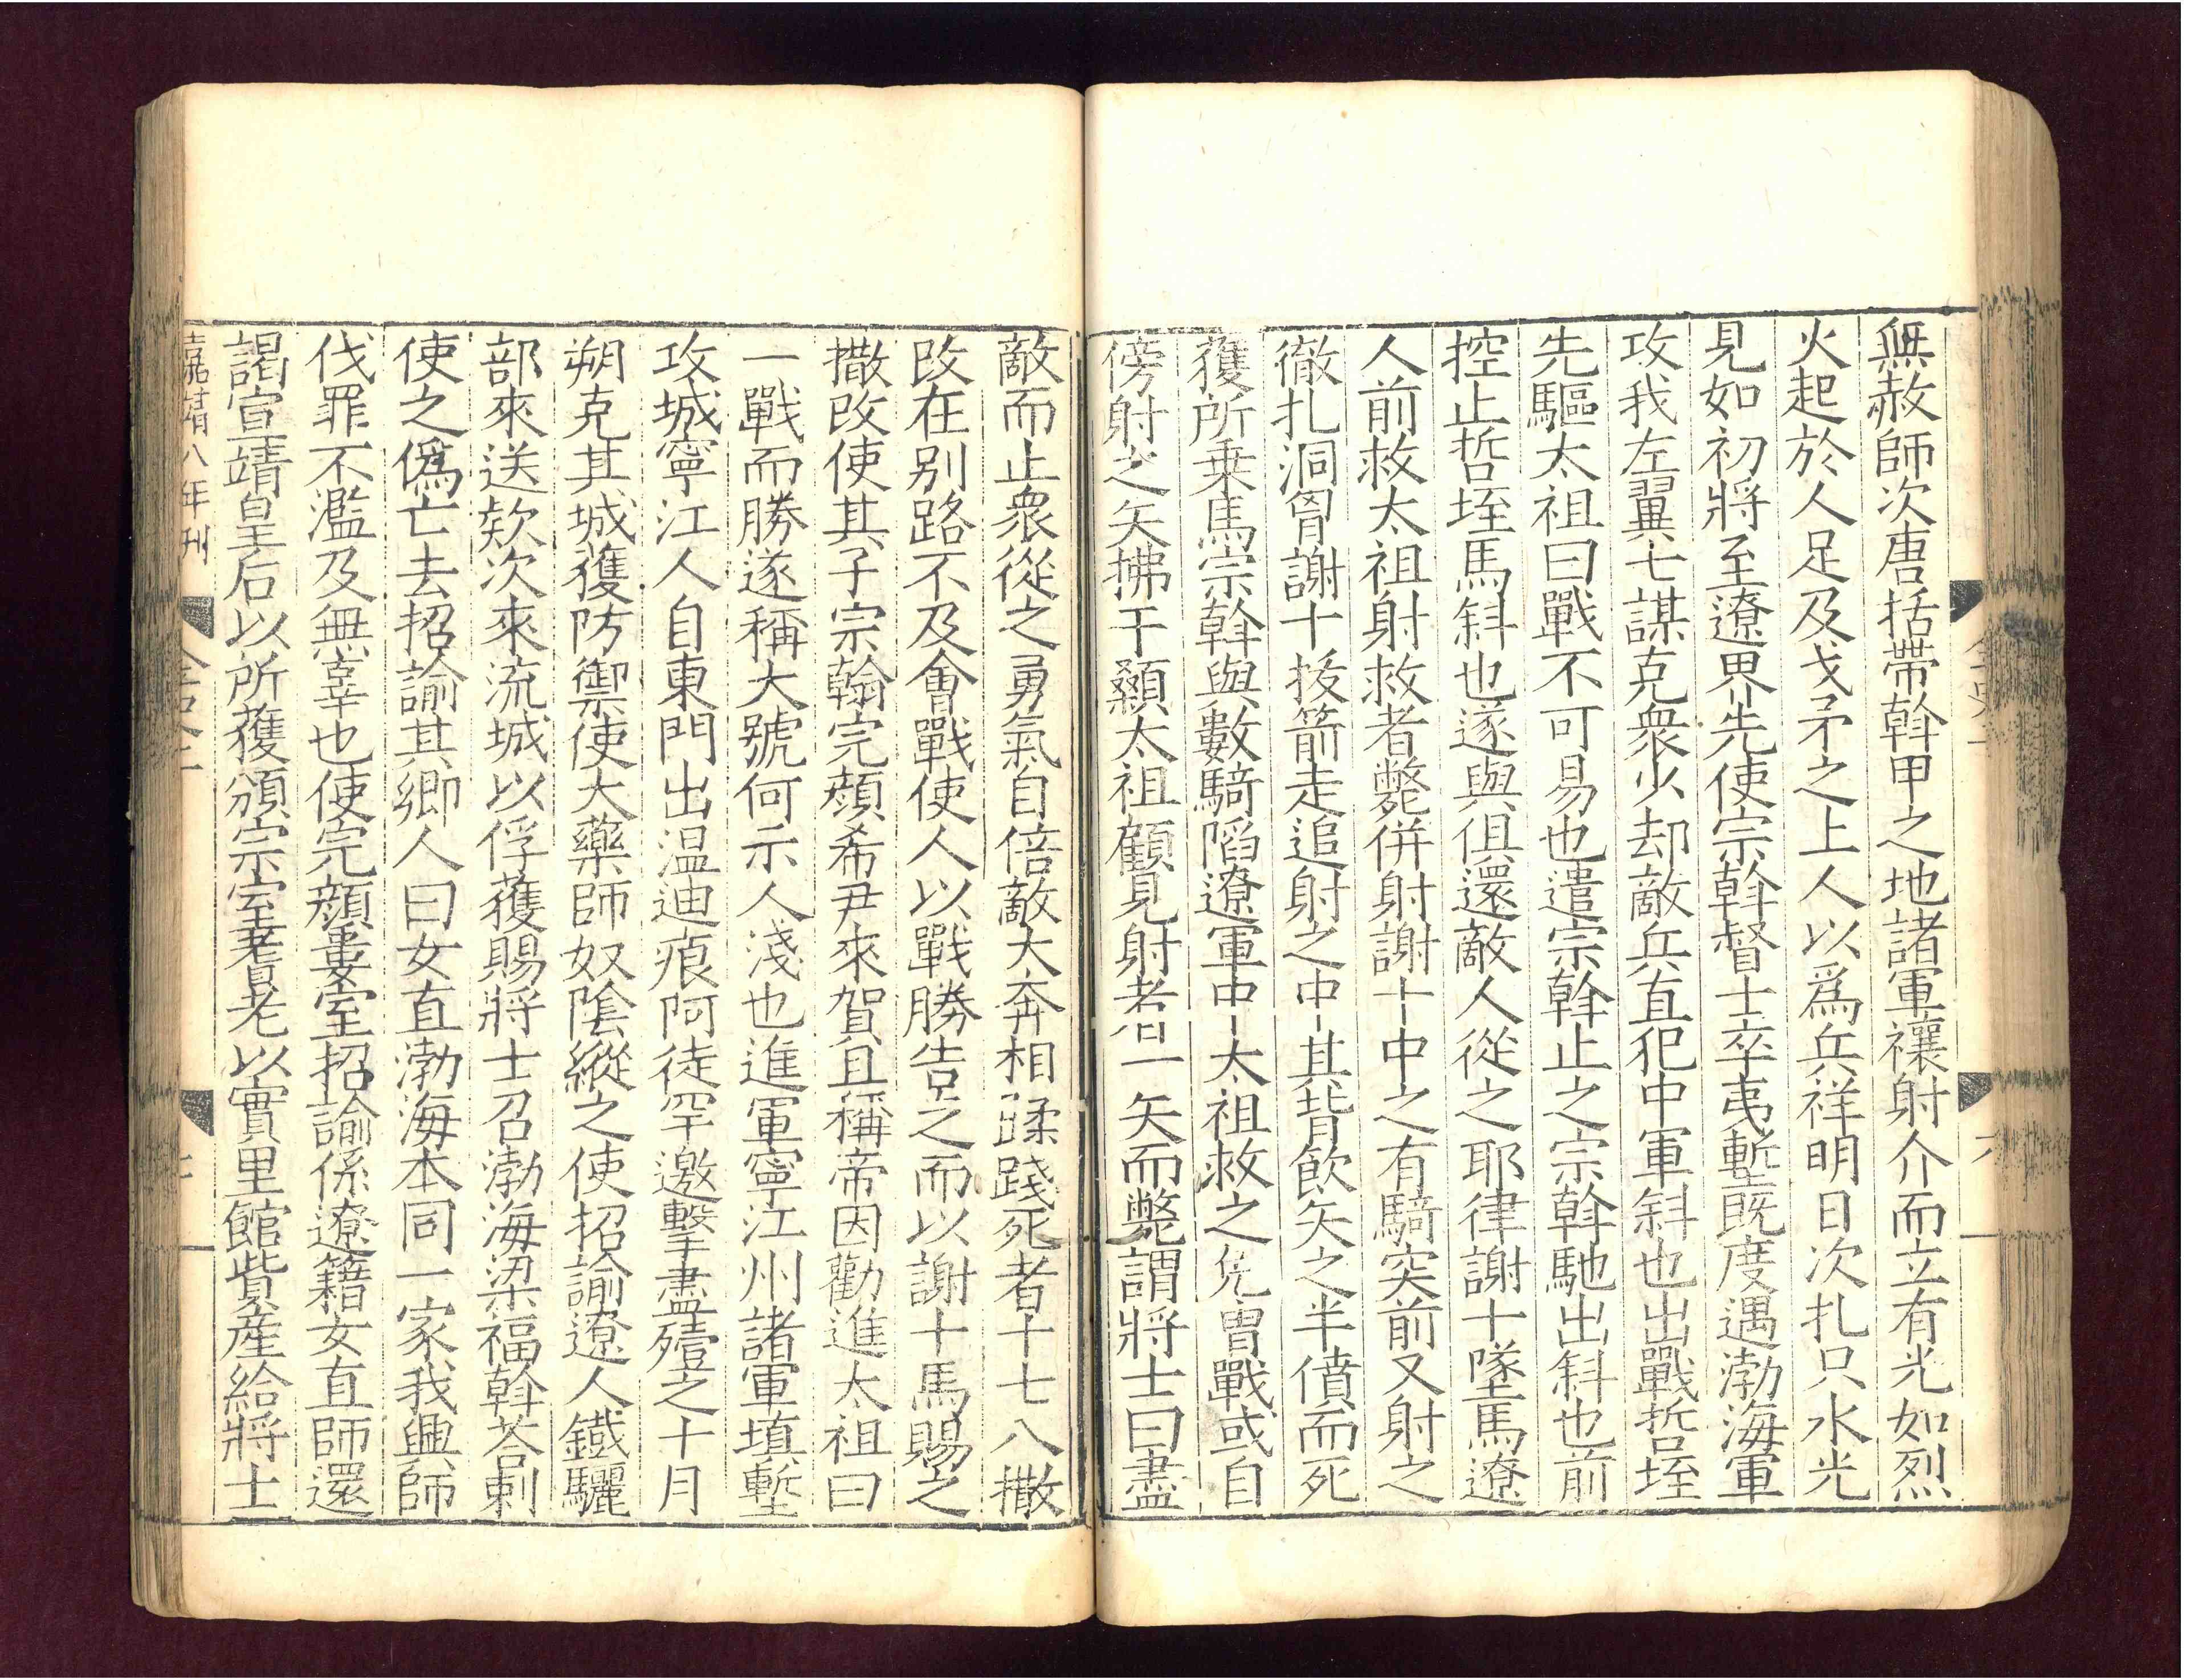 無赦師次唐括帶斡甲之地諸軍禳射介而立有光如烈
火起於人足及戈矛之上人以爲兵祥明日次扎只水光
見如初將至遼界先使宗斡督士卒夷塹旣度遇渤海軍
攻我左翼七謀克衆少却敵兵直犯中軍斜也出戰哲垤
先驅太祖曰戰不可易也遣宗斡止之宗斡馳出斜也前
控止哲垤馬斜也遂與俱還敵人從之耶律謝十墜馬遼
人前救太祖射救者斃併射謝十中之有騎突前又射之
徹扎洞胷謝十拔箭走追射之中其背飲矢之半僨而死
獲所乗馬宗斡與數騎陷遼軍中太祖救之免胄戰或自
傍射之矢拂于顙太祖顧見射者一矢而斃謂將士曰盡
敵而止衆從之勇氣自倍敵大奔相蹂踐死者十七八撒
改在别路不及會戰使人以戰勝告之而以謝十馬賜之
撒改使其子宗翰完顔希尹來賀且稱帝因勸進太祖曰
一戰而勝遂稱大號何示人淺也進軍寧江州諸軍填塹
攻城寧江人自東門出温迪痕阿徒罕邀擊盡殪之十月
朔克其城獲防禦使大藥師奴陰縱之使招諭遼人鐵驪
部來送欵次來流城以俘獲賜將士召渤海梁福斡荅剌
使之僞亡去招諭其鄉人曰女直渤海本同一家我興師
伐罪不濫及無辜也使完顔婁室招諭係遼籍女直師還
謁宣靖皇后以所獲頒宗室耆老以實里館貲産給將士
嘉靖八年刊
金史二
七